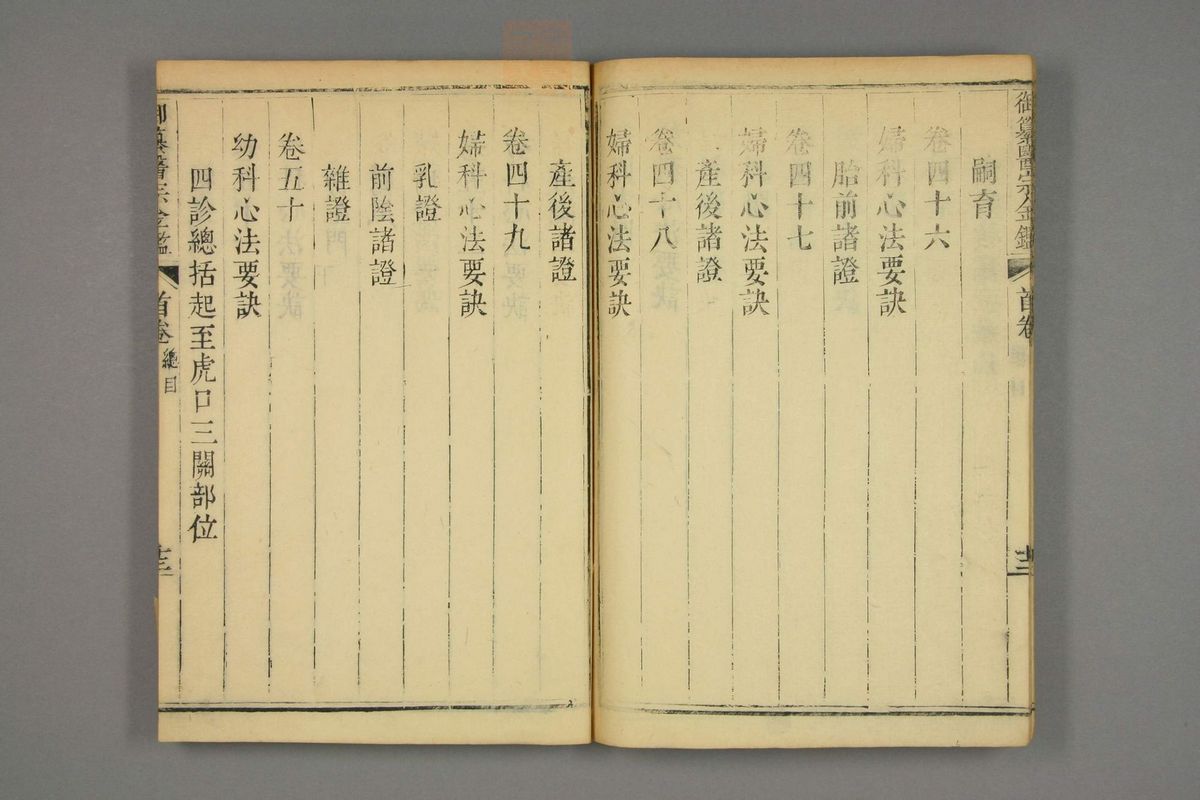 御纂醫宗金鑑 首卷
嗣育
卷四十六
婦科心法要訣
胎前諸證
卷四十七
婦科心法要訣
產後諸證
卷四十八
婦科心法要訣
產後諸證
卷四十九
婦科心法要訣
乳證
前陰諸證
雜證門
卷五十
幼科心法要訣
四診總括起至虎口三關部位
御纂醫宗金鑑 首卷 總目